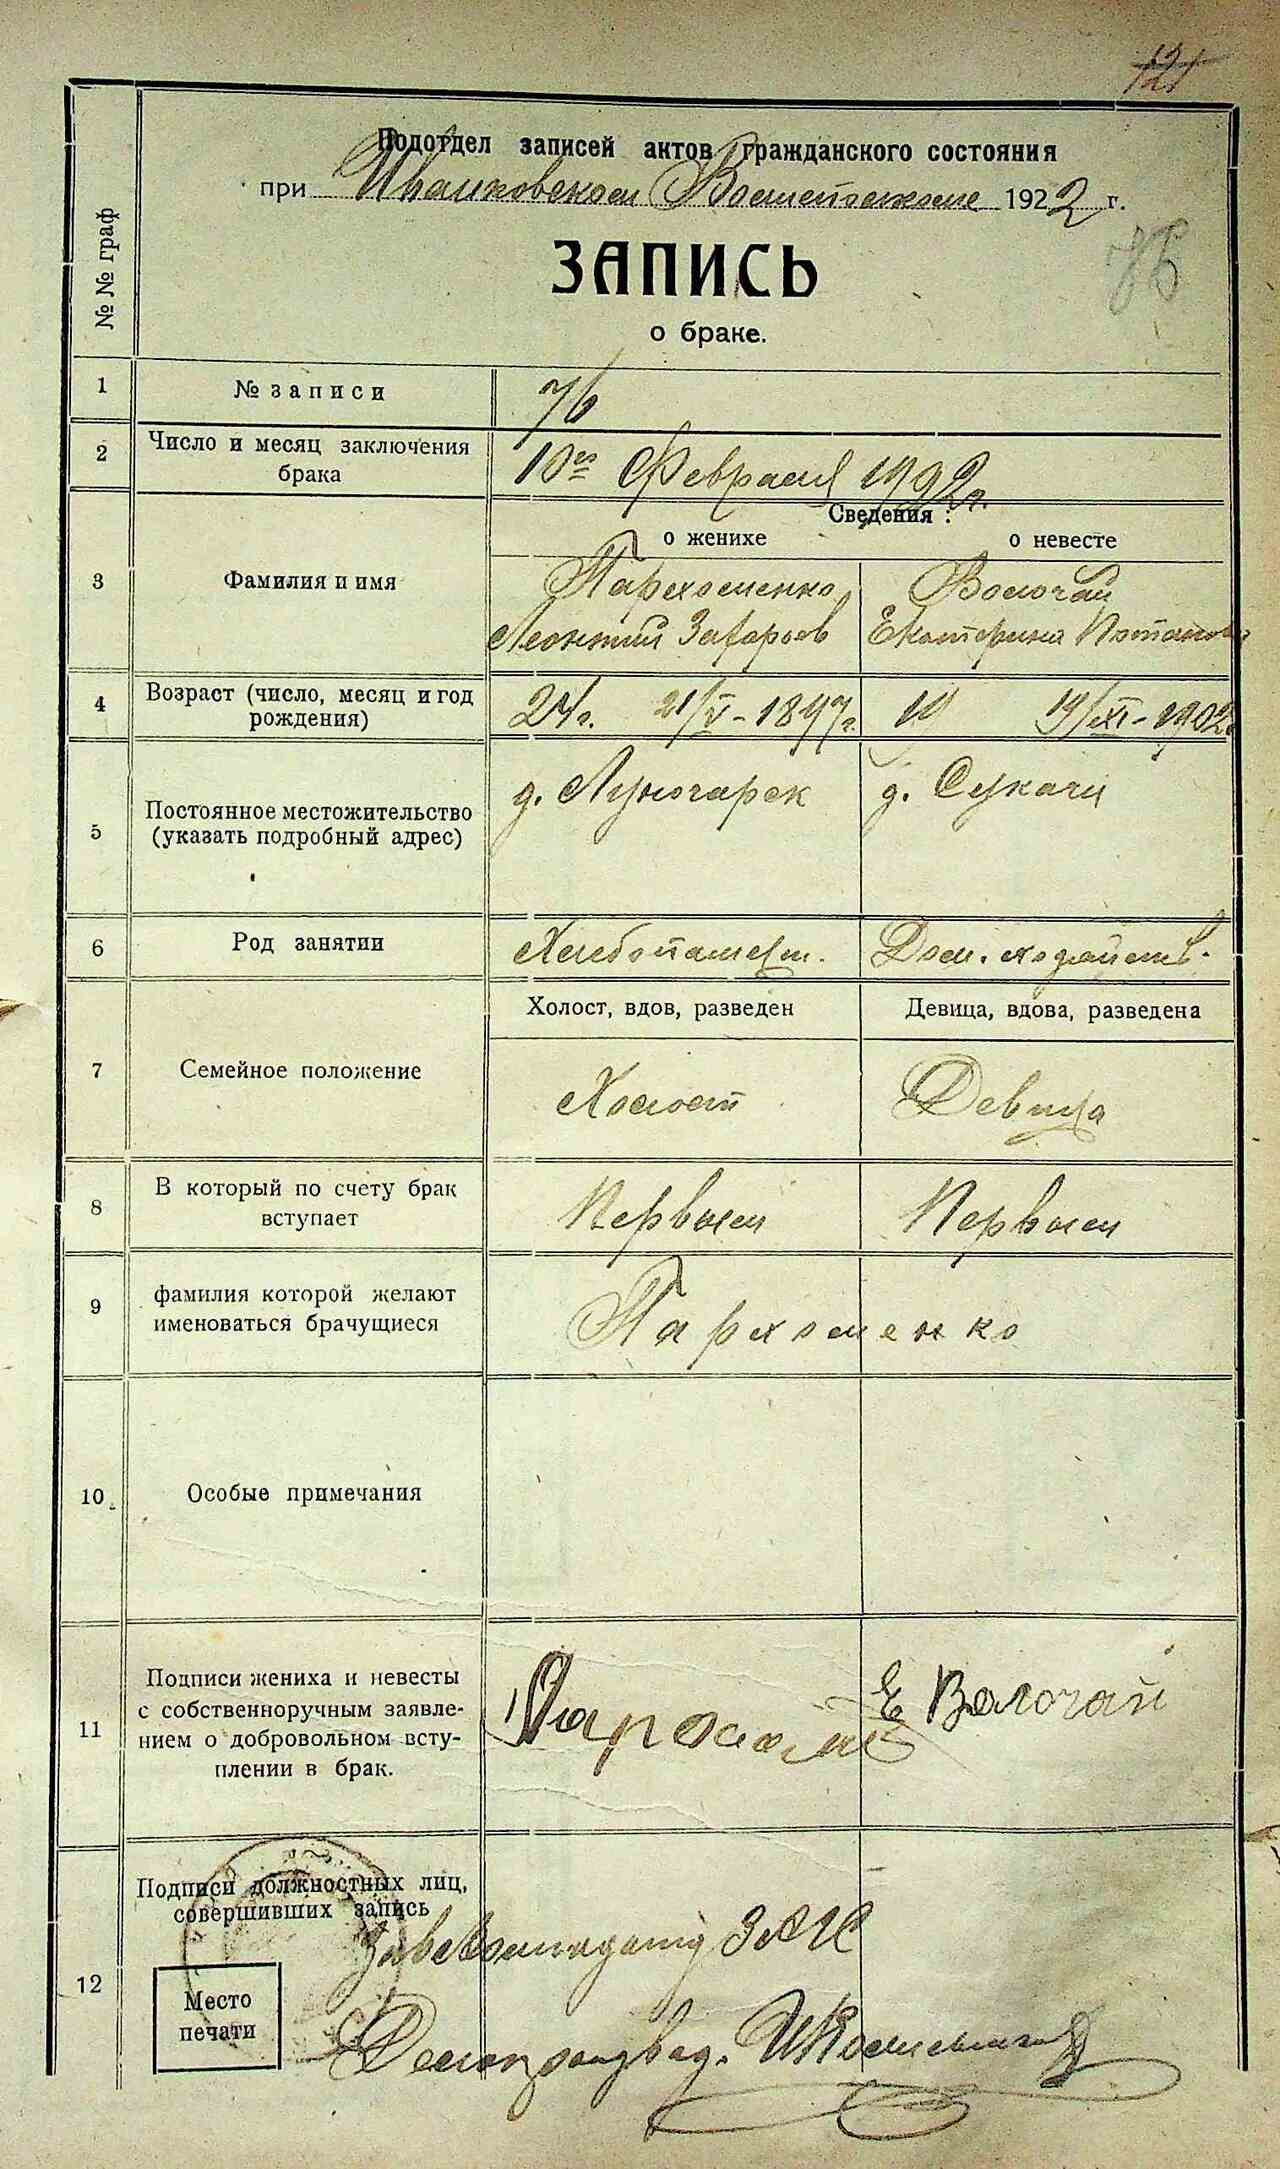 121
Подотдел записей актов гражданского состояния
при Иванковском Волисполкоме 1922 г.
76
№№ граф
ЗАПИСЬ
о браке.
1 № записи 76
2 Число и месяц заключения
брака
10го Февраля 1922г.
Сведения:
о женихе о невесте
3 Фамилия и имя
Пархоменко Волочай
Леонтий Захарьев Екатерина Потапова
4 Возраст (число, месяц и год
рождения)
24г. 21/V-1897г. 19 19/XI-1902
5 Постоянное местожительство
(указать подробный адрес)
д. Луночарск д. Сукачи
6 Род занятии Хлебопашец. Дом. хозяйств.
Холост, вдов, разведен Девица, вдова, разведена
7 Семейное положение Холост Девица
8 В который по счету брак
вступает
Первым Первым
9 фамилия которой желают
именоваться брачущиеся
Пархоменко
10 Особые примечания
11 Подписи жениха и невесты
с собственноручным заявле-
нием о добровольном всту-
плении в брак.
Е Волочай
12 Подписи должностных лиц,
совершивших запись
ЗАГС
Место
печати
Делопроизвод.